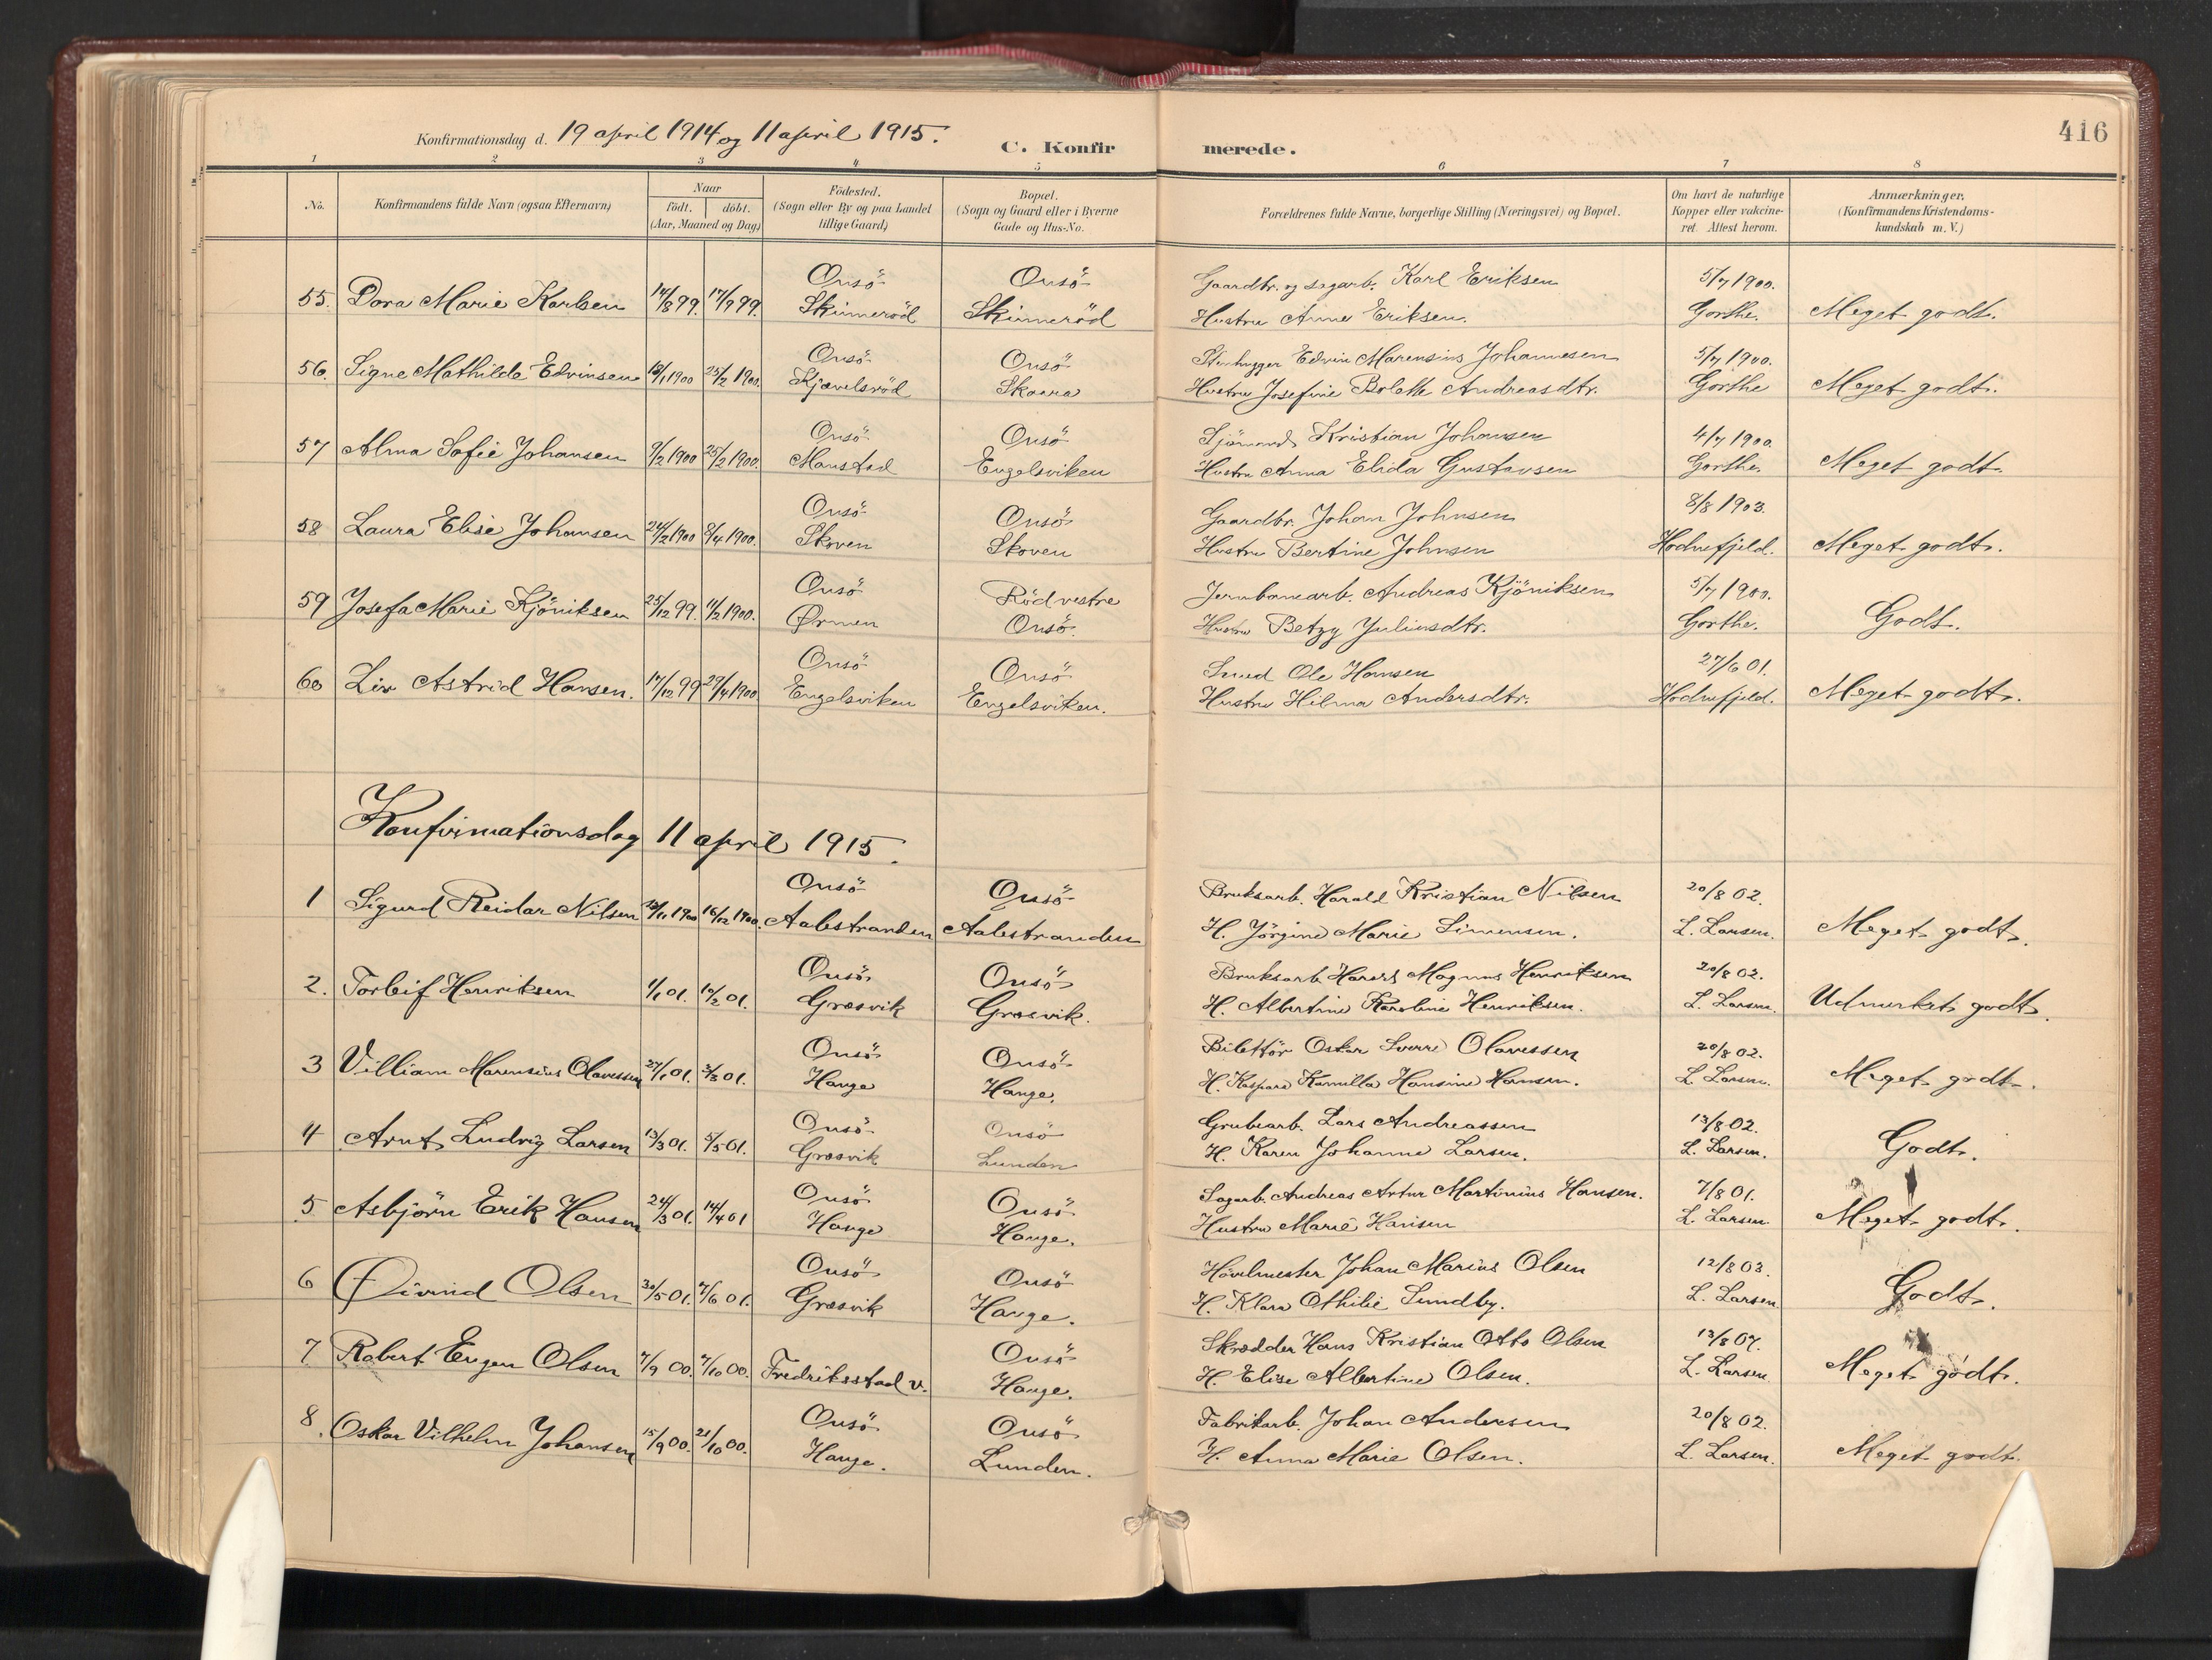 Konfirmationsdag d. 19 april 1914 og 11 april 1915.
C. Konfirmerede.
416
1 2 3 4 5 6 7 8
No. Konfirmandens fulde Navn (ogsaa Efternavn)
Naar
födt. döbt.
(Aar, Maaned og Dag)
Födested.
(Sogn eller By og paa Landet
tillige Gaard)
Bopæl.
(Sogn og Gaard eller i Byerne
Gade og Hus-No.
Forældrenes fulde Navne, borgerlige Stilling (Næringsvei) og Bopæl.
Om havt de naturlige
Kopper eller vakcine-
ret. Attest herom.
Anmærkninger.
(Konfirmandens Kristendoms-
kundskab m. V.)
Onsö Onsö Gaardbr. og sagarb. Karl Eriksen 5/7 1900.
55. Dora Marie Karlsen 14/8 99. 17/9 99. Skinneröd Skinneröd Hustru Anne Eriksen. Gorthe. Meget godt.
Onsö Onsö Stenhugger Edvin Marensius Johannesen 5/7 1900.
56. Signe Mathilde Edvinsen 1900 25/2 1900. Kjævelsröd Skaara Hustru Josefine Bolette Andreasdtr. Gorthe Meget godt.
Onsö Onsö Sjömand Kristian Johansen 4/7 1900.
57 Alma Sofie Johansen 9/2 1900 25/2 1900. Manstad Engelsviken Hustru Anna Elida Gustavsen Gorthe. Meget godt.
Onsö Onsö Gaardbr. Johan Johnsen 8/8 1903.
58 Laura Elise Johansen 24/2 1900 8/4 1900. Skoven Skoven Hustru Bertine Johnsen Hodnefjeld. Meget godt.
Onsö Röd vestre Jernbanearb. Andreas Kjöniksen 5/7 1900.
59 Josefa Marie Kjöniksen 25/12 99. 11/2 1900. Ørmen Onsö. Hustru Betzy Juliusdtr. Gorthe. Godt.
Onsö Onsö Smed Ole Hansen 27/6 01.
60 Liv Astrid Hansen. 17/12 99 29/4 1900 Engelsviken Engelsviken. Hustru Hilma Andersdtr. Hodnefjeld. Meget godt.
Konfirmationsdag 11 april 1915.
Onsö Onsö Bruksarb. Harald Kristian Nilsen 20/8 02.
1 Sigurd Reidar Nilsen 1900 16/12 1900. Aalestranden Aalestranden H. Jörgine Marie Simensen. L. Larsen. Meget godt.
Onsö Onsö Bruksarb. Magnus Henriksen 20/8 02.
2. Torleif Henriksen 1/1 01. 10/2 01. Græsvik Græsvik. H. Albertine Karoline Henriksen. L. Larsen. Udmerket godt.
Onsö Onsö Biletör Oskar Sverre Olavessen 20/8 02.
3 Villiam Marensius Olavessen 27/1 01. 3/3 01. Hauge Hauge. H. Kaspara Kamilla Hansine Hansen. L. Larsen. Meget godt.
Onsö Onsö Grubearb. Lars Andreassen 13/8 02.
4 Arnt Ludvig Larsen 13/3 01. 5/5 01. Græsvik Lunden H. Karen Johanne Larsen. L. Larsen. Godt.
Onsö Onsö Sagarb. Andreas Artur Martinius Hansen. 7/8 01.
5 Asbjörn Erik Hansen 24/3 01. 14/4 01 Hauge Hauge. Hustru Marie Hansen L. Larsen. Meget godt.
Onsö Onsö Hövelmester Johan Marius Olsen 12/8 03.
6 Øivind Olsen 30/5 01. 7/6 01. Græsvik Hauge. H. Klara Othilie Sundby. L. Larsen. Godt.
Onsö Skrædder Hans Kristian Otto Olsen 13/8 07.
7 Robert Eugen Olsen 7/9 00. 7/10 00. Fredriksstad v. Hauge. H. Elise Albertine Olsen. L. Larsen. Meget godt.
Onsö Onsö Fabrikarb. Johan Andersen 20/8 02.
8. Oskar Vilhelm Johansen 15/9 00. 21/10 00. Hauge. Lunden. H. Anna Marie Olsen. L. Larsen. Meget godt.